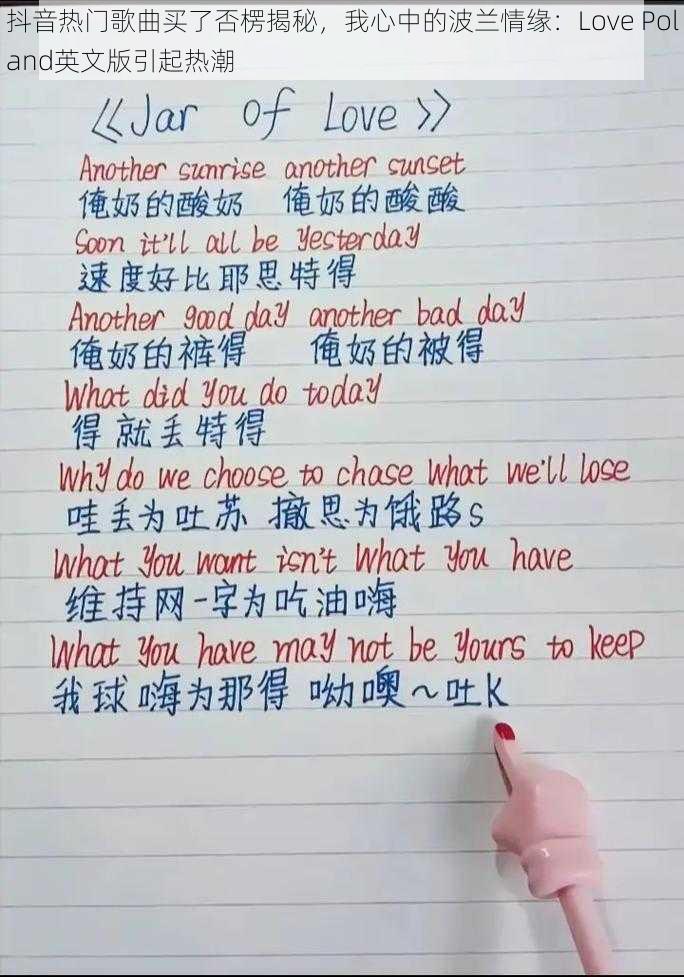 抖音热门歌曲买了否楞揭秘，我心中的波兰情缘：Love Pol
and英文版引起热潮
《Jar of Love》
Another sunrise another sunset
俺奶的酸奶 俺奶的酸酸
Soon it'll all be yesterday
速度好比耶思特得
Another good day another bad day
俺奶的裤得 俺奶的被得
What did you do today
得就丢特得
Why do we choose to chase what we'll lose
哇丢为吐苏 撤思为饿路s
What you want isn't what you have
维持网一字为吃油嗨
What you have may not be yours to keep
我球嗨为那得 呦噢～吐K